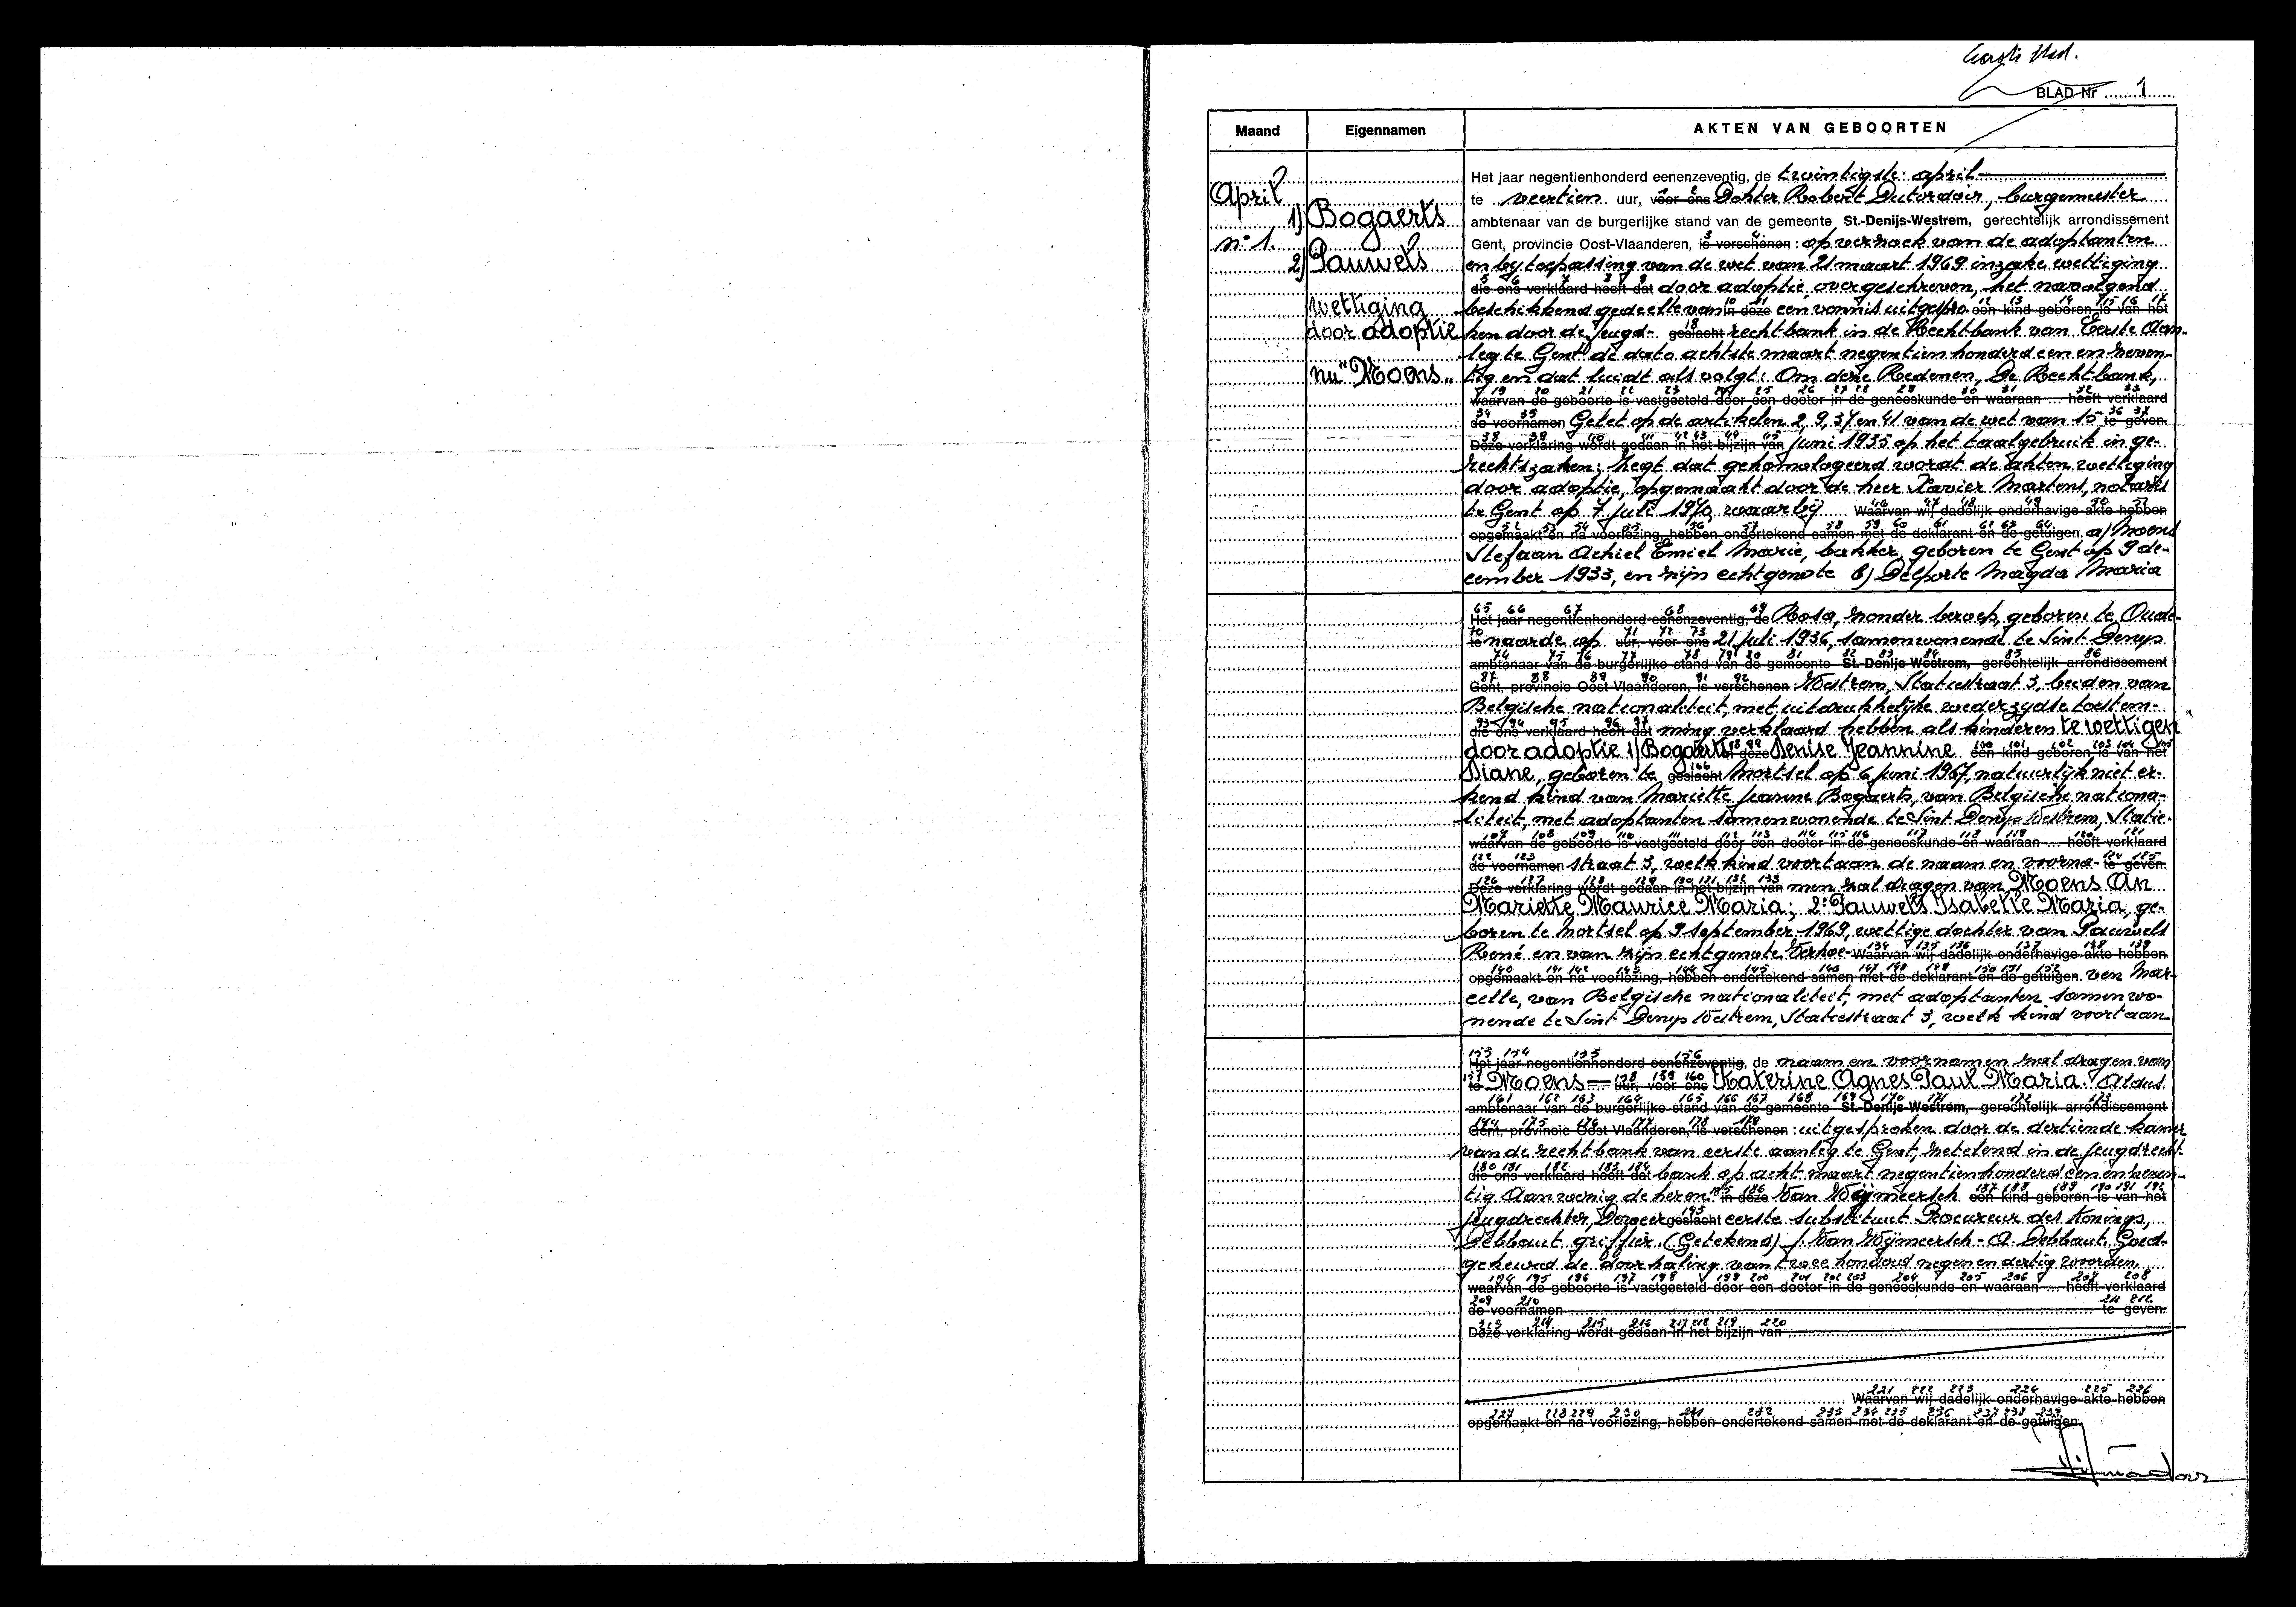 Eerste blad.
BLAD Nr 1
Maand Eigennamen AKTEN VAN GEBOORTEN
April
n° 1.
1) Bogaerts
2) Pauwels
wettiging
door adoptie
nu "Moens"
Het jaar negentienhonderd eenenzeventig, de twintigste april
te veertien uur, voor ons Dokter Robert Dutordoir, burgemeester
ambtenaar van de burgerlijke stand van de gemeente St.-Denijs-Westrem, gerechtelijk arrondissement
Gent, provincie Oost-Vlaanderen, is verschenen : op verzoek van de adoptanten
en bij toepassing van de wet van 21 maart 1969 inzake wettiging
die ons verklaard heeft dat door adoptie overgeschreven, het navolgend
beschikkend gedeelte van in deze een vonnis uitgespro een kind geboren is van het
ken door de Jeugd- geslacht rechtbank in de Rechtbank van Eerste Aan-
leg te Gent de dato achtste maart negentien honderd een en zeven-
tig en dat luidt als volgt: Om deze Redenen, De Rechtbank,
waarvan de geboorte is vastgesteld door een doctor in de geneeskunde en waaraan ... heeft verklaard
de voornamen Gelet op de artikelen 2, 9, 37 en 41 van de wet van 15 te geven.
Deze verklaring wordt gedaan in het bijzijn van Juni 1935 op het taalgebruik in ge-
rechtszaken; Zegt dat gehomologeerd wordt de akten wettiging
door adoptie, opgemaakt door de heer Xavier Martens, notaris
te Gent op 7 juli 1970, waarbij Waarvan wij dadelijk onderhavige akte hebben
opgemaakt en na voorlezing, hebben ondertekend samen met de deklarant en de getuigen. a) Moens
Stefaan Achiel Emiel Marie, bakker, geboren te Gent op 9 de-
cember 1933, en zijn echtgenote b) Delporte Magda Maria
Het jaar negentienhonderd eenenzeventig, de Rosa, zonder beroep, geboren te Oude-
te naarde op uur, voor ons 21 juli 1936, samenwonende te Sint Denys
ambtenaar van de burgerlijke stand van de gemeente St.-Denijs-Westrem, gerechtelijk arrondissement
Gent, provincie Oost-Vlaanderen, is verschenen : Westrem, Statiestraat 3, beiden van
Belgische nationaliteit, met uitdrukkelijke wederzydse toestem-
die ons verklaard heeft dat ming verklaard hebben als kinderen te wettigen
door adoptie 1) Bogaerts in deze Denise Jeannine een kind geboren is van het
Diane, geboren te geslacht Mortsel op 6 juni 1967, natuurlijk niet er-
kend kind van Mariette Jeanne Bogaerts, van Belgische nationa-
liteit, met adoptanten samenwonende te Sint Denys Westrem, Statie-
waarvan de geboorte is vastgesteld door een doctor in de geneeskunde en waaraan ... heeft verklaard
de voornamen straat 3, welk kind voortaan de naam en voorna- te geven.
Deze verklaring wordt gedaan in het bijzijn van men zal dragen van Moens An
Mariette Maurice Maria; 2° Pauwels Isabelle Maria, ge-
boren te Mortsel op 9 september 1969, wettige dochter van Pauwels
René en van zijn echtgenote Verhoe- Waarvan wij dadelijk onderhavige akte hebben
opgemaakt en na voorlezing, hebben ondertekend samen met de deklarant en de getuigen. ven Mar-
celle, van Belgische nationaliteit, met adoptanten samenwo-
nende te Sint Denys Westrem, Statiestraat 3, welk kind voortaan
Het jaar negentienhonderd eenenzeventig, de naam en voornamen zal dragen van
te Moens uur, voor ons Katerine Agnes Paul Maria. Aldus
ambtenaar van de burgerlijke stand van de gemeente St.-Denijs-Westrem, gerechtelijk arrondissement
Gent, provincie Oost-Vlaanderen, is verschenen : uitgesproken door de dertiende kamer
van de rechtbank van eerste aanleg te Gent, zetelend in de Jeugdrecht-
die ons verklaard heeft dat bank op acht maart negentienhonderd een en zeven-
tig Aanwezig de heren: in deze Van Wijmeersch een kind geboren is van het
Jeugdrechter, geslacht eerste substituut Procureur des Konings,
Debbaut griffier. (Getekend) J. Van Wijmeersch - A. Debbaut. Goed-
gekeurd de doorhaling van twee honderd negen en dertig woorden.
waarvan de geboorte is vastgesteld door een doctor in de geneeskunde en waaraan ... heeft verklaard
de voornamen te geven.
Deze verklaring wordt gedaan in het bijzijn van
Waarvan wij dadelijk onderhavige akte hebben
opgemaakt en na voorlezing, hebben ondertekend samen met de deklarant en de getuigen.